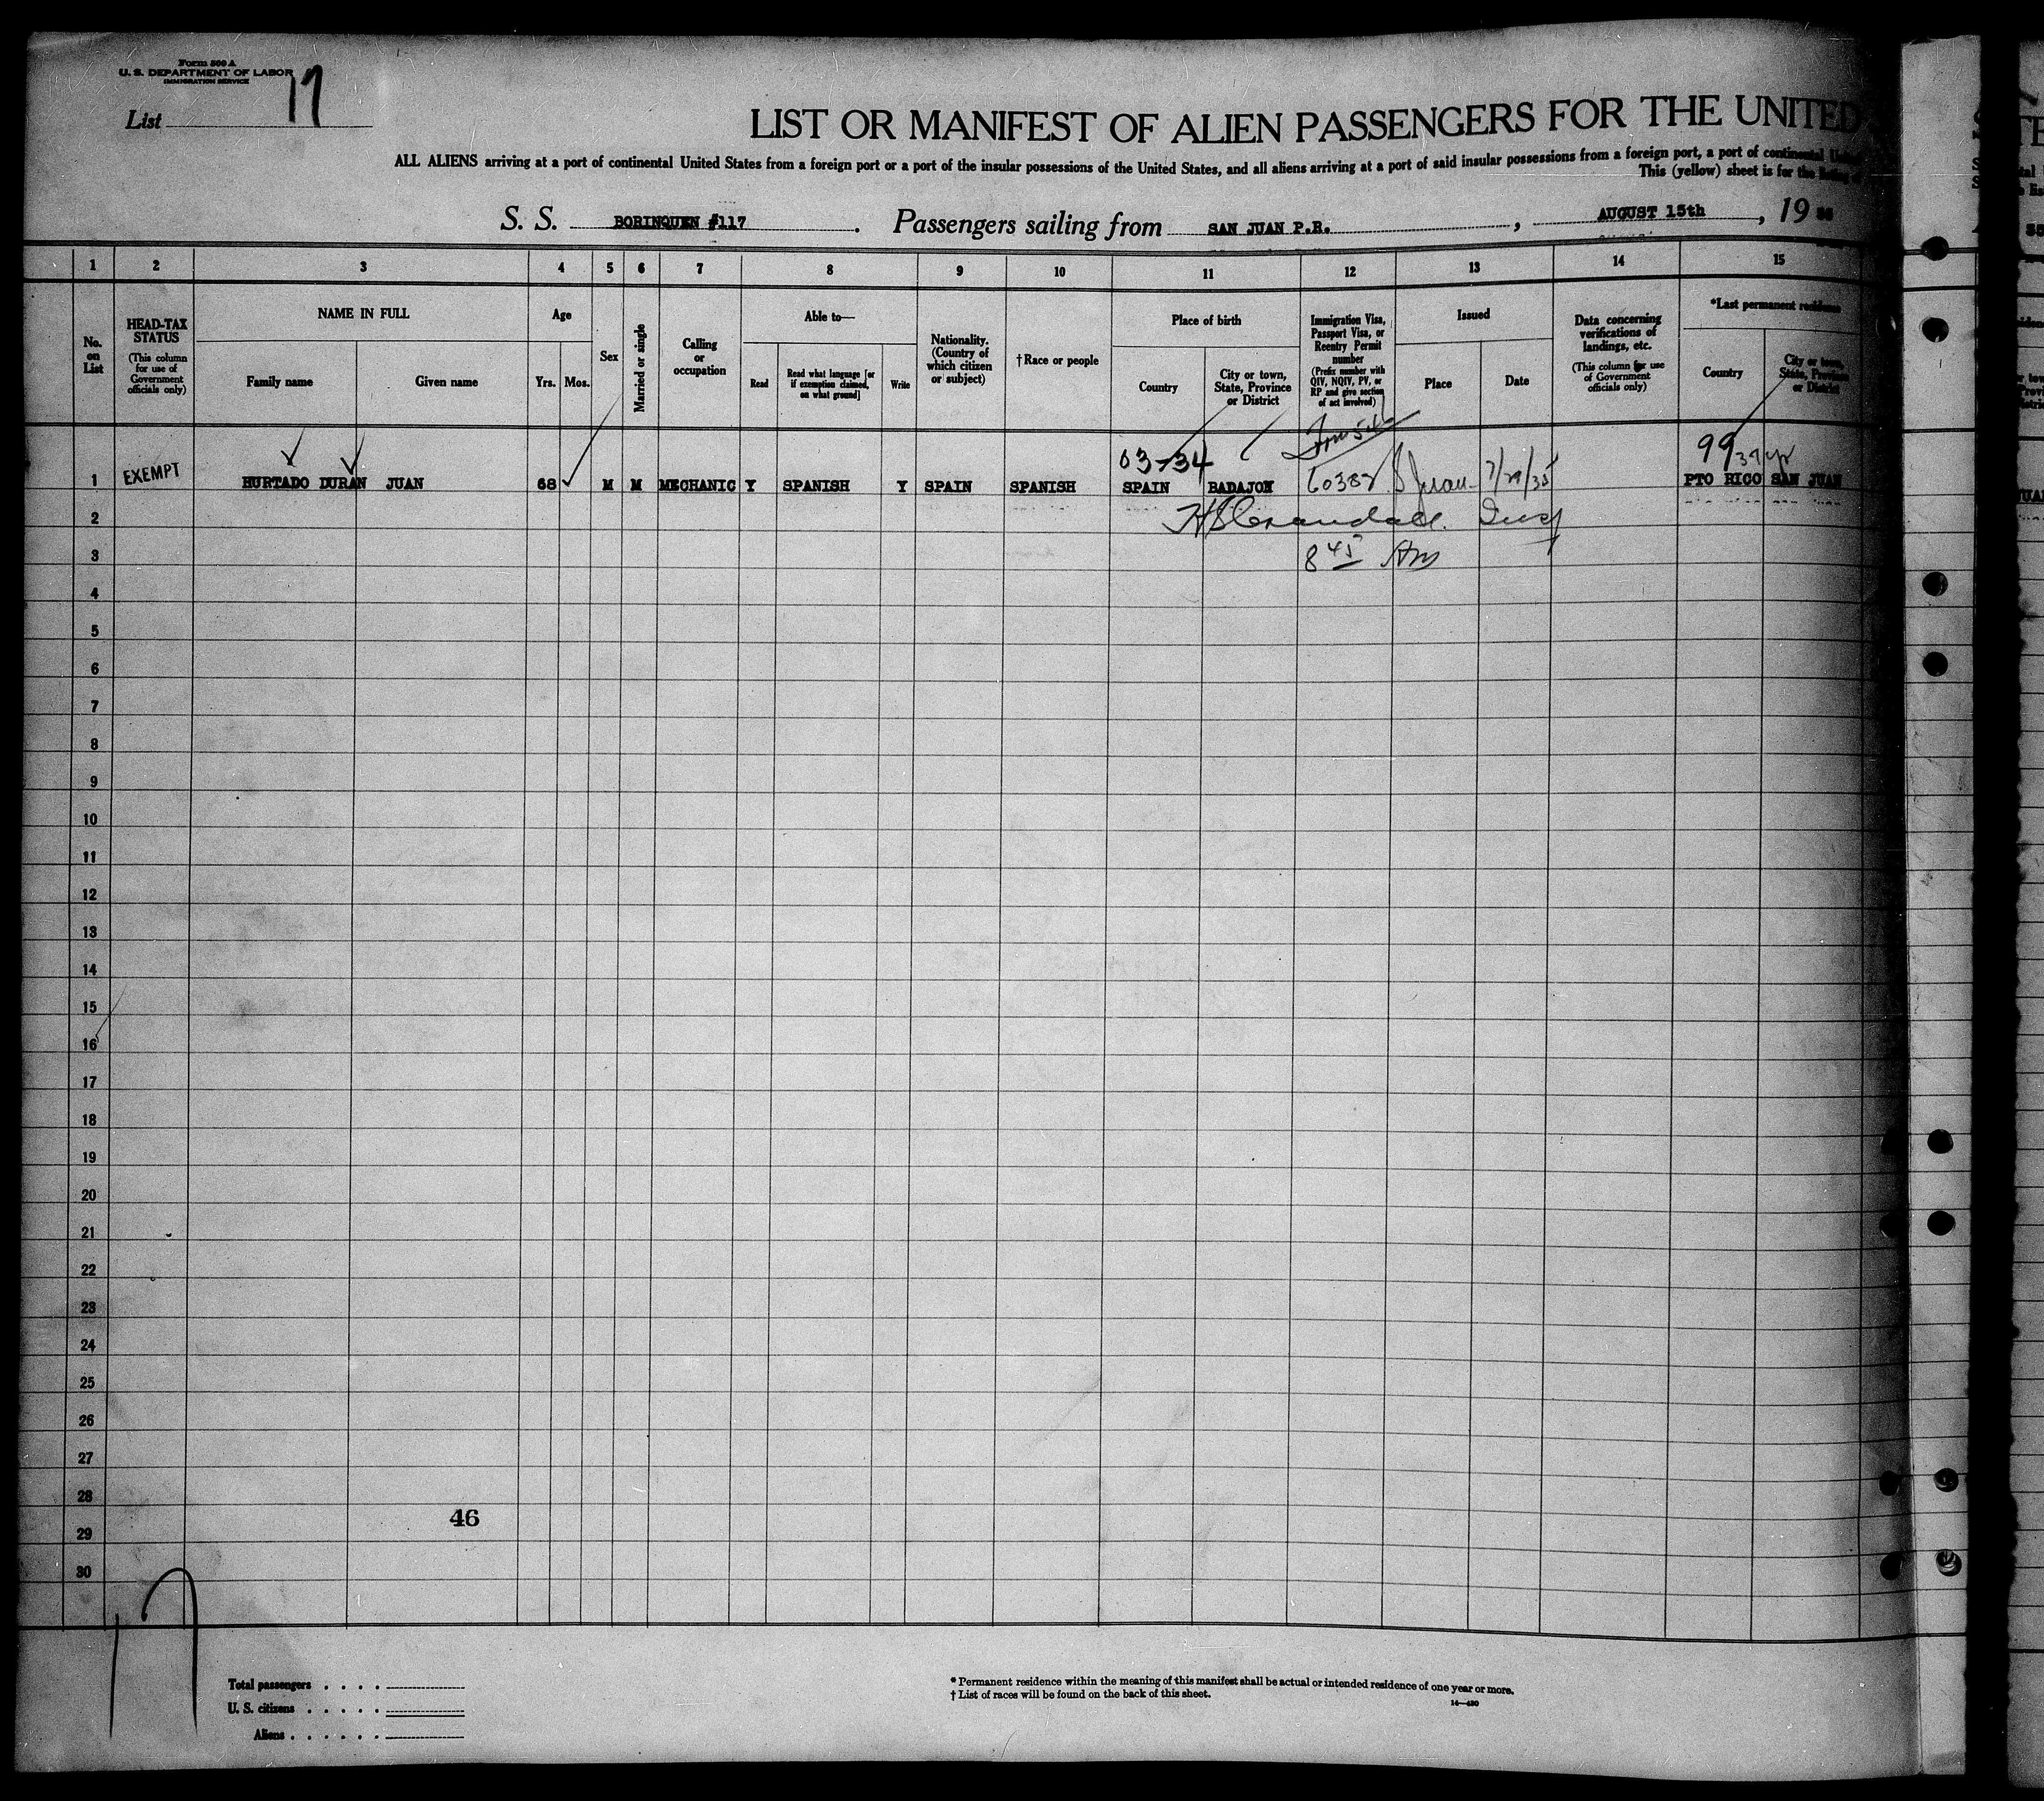 Form 500 A
U. S. DEPARTMENT OF LABOR
IMMIGRATION SERVICE
List 17
LIST OR MANIFEST OF ALIEN PASSENGERS FOR THE UNITED
ALL ALIENS arriving at a port of continental United States from a foreign port or a port of the insular possessions of the United States, and all aliens arriving at a port of said insular possessions from a foreign port, a port of continental
This (yellow) sheet is for the
S. S. BORINQUEN #117. Passengers sailing from SAN JUAN P.R., AUGUST 15th, 19 35
1 2 3 4 5 6 7 8 9 10 11 12 13 14 15
No. on List
HEAD-TAX STATUS
(This column for use of Government officials only)
NAME IN FULL
Family name Given name
Age
Yrs. Mos.
Sex
Married or single
Calling or occupation
Able to—
Read
Read what language [or if exemption claimed, on what ground]
Write
Nationality. (Country of which citizen or subject)
†Race or people
Place of birth
Country
City or town, State, Province or District
Immigration Visa, Passport Visa, or Reentry Permit number
(Prefix number with QIV, NQIV, PV, or RP and give section of act involved)
Issued
Place Date
Data concerning verifications of landings, etc.
(This column for use of Government officials only)
*Last permanent residence
Country
City or town, State, Province or District
03-34 99 39 yr
1 EXEMPT HURTADO DURAN JUAN 68 M M MECHANIC Y SPANISH Y SPAIN SPANISH SPAIN BADAJOX 60382 S Juan 7/29/35 PTO RICO SAN JUAN
2 H S Crandall. Insp
3 8 45 Am
4
5
6
7
8
9
10
11
12
13
14
15
16
17
18
19
20
21
22
23
24
25
26
27
28
46
29
30
17
Total passengers . . . .
U. S. citizens . . . . .
Aliens . . . . . .
* Permanent residence within the meaning of this manifest shall be actual or intended residence of one year or more.
† List of races will be found on the back of this sheet.
14—430